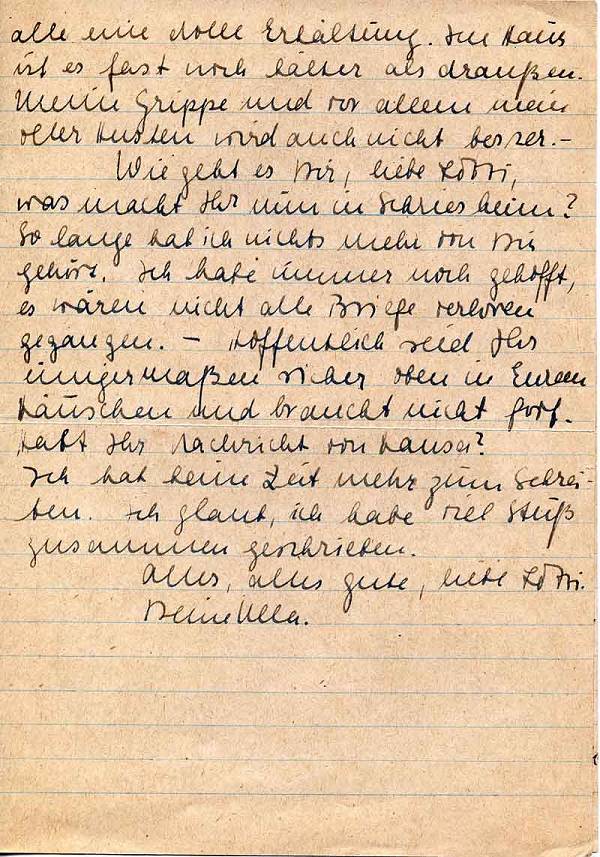 alle eine dolle Erkältung. Im Haus
ist es fast noch kälter als draußen.
Meine Grippe und vor allem mein
oller Husten wird auch nicht besser. –
Wie geht es Dir, liebe Lotti,
was macht Ihr nun in Schriesheim?
So lange hab ich nichts mehr von Dir
gehört. Ich habe immer noch gehofft,
es wären nicht alle Briefe verloren
gegangen. – Hoffentlich seid Ihr
einigermaßen sicher oben in Eurem
Häuschen und braucht nicht fort.
Habt Ihr Nachricht von Hansei?
Ich hab keine Zeit mehr zum Schrei-
ben. Ich glaub, ich habe viel Stuß
zusammen geschrieben.
Alles, alles gute, liebe Lotti.
Deine Ulla.